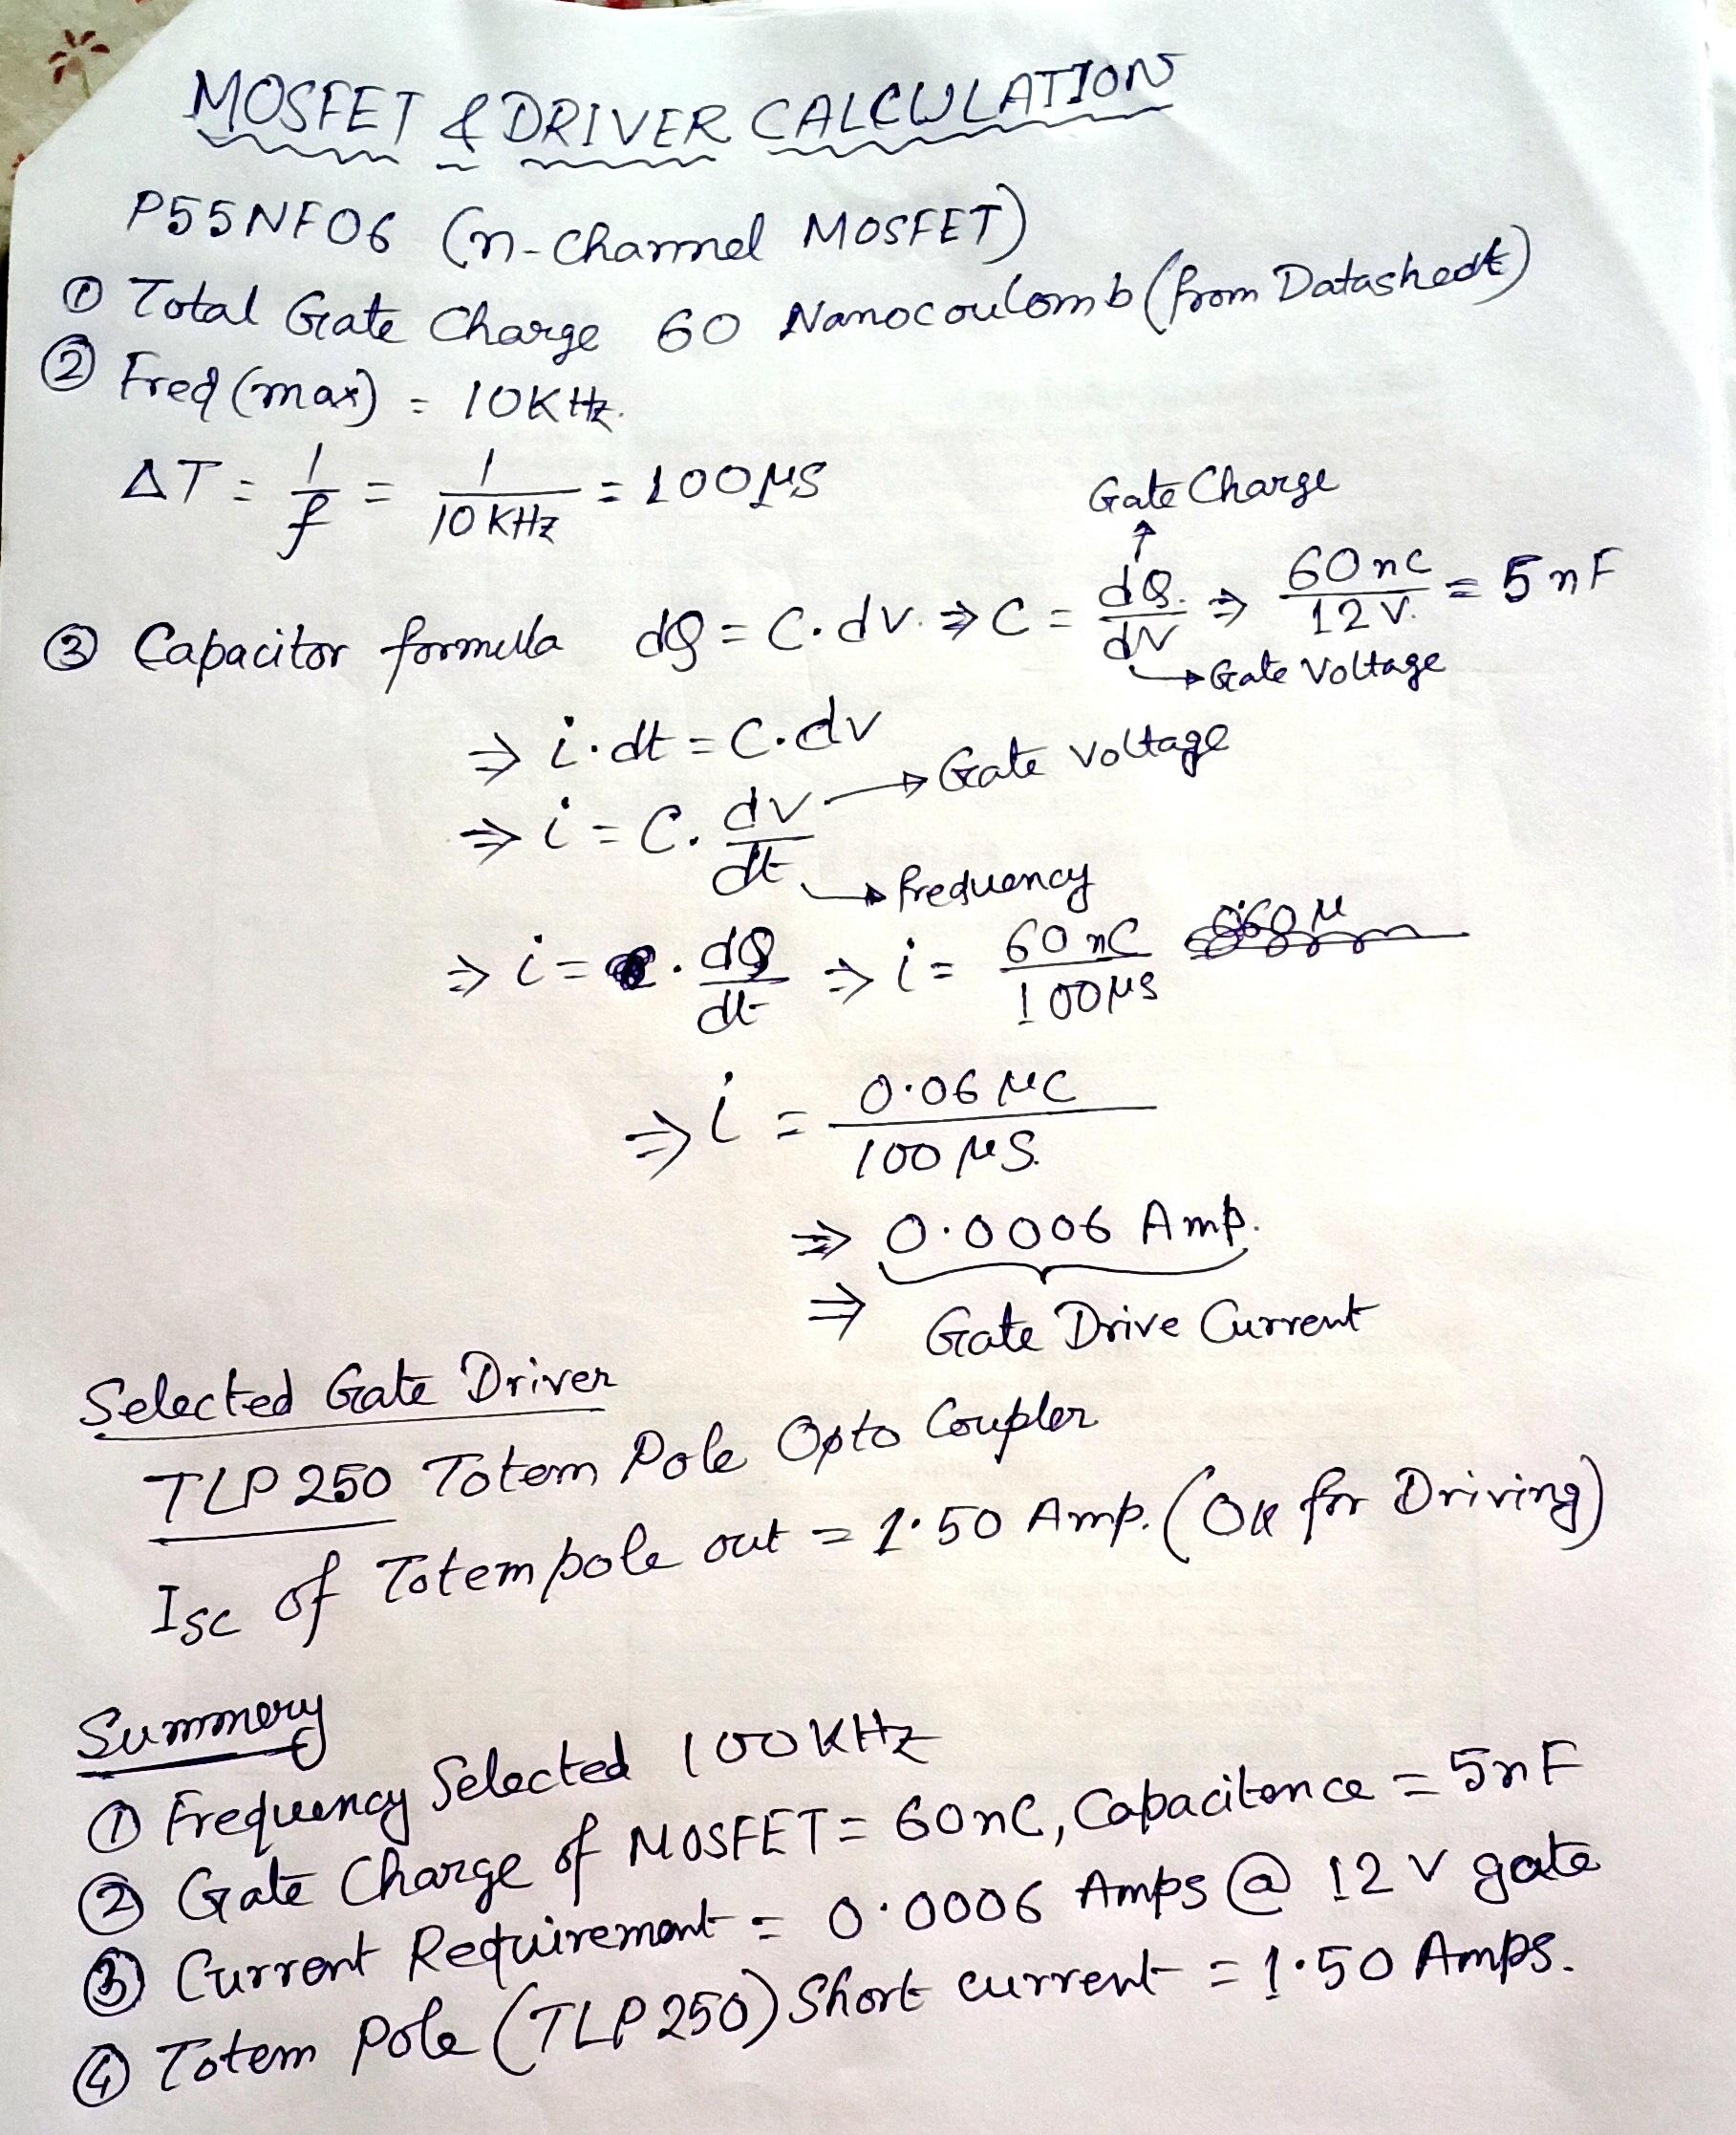 MOSFET & DRIVER CALCULATION
P55NF06 (n-channel MOSFET)
① Total Gate Charge 60 Nanocoulomb (from Datasheet)
② Freq (max) = 10KHz.
ΔT = 1/f = 1/10 KHz = 100μs
Gate Charge
③ Capacitor formula dQ = C.dv. ⇒ C = dQ/dv ⇒ 60nc/12V. = 5nF
Gate Voltage
⇒ i.dt = C.dv
Gate Voltage
⇒ i = C. dv/dt
frequency
⇒ i = . dQ/dt ⇒ i = 60nC/100μs
⇒ i = 0.06 μC/100 μS.
⇒ 0.0006 Amp.
⇒ Gate Drive Current
Selected Gate Driver
TLP250 Totem Pole Opto Coupler
Isc of Totempole out = 1.50 Amp. (OK for Driving)
Summery
① Frequency Selected 100KHz
② Gate Charge of MOSFET = 60nC, Capacitence = 5nF
③ Current Requirement = 0.0006 Amps @ 12V gate
④ Totem Pole (TLP250) Short current = 1.50 Amps.